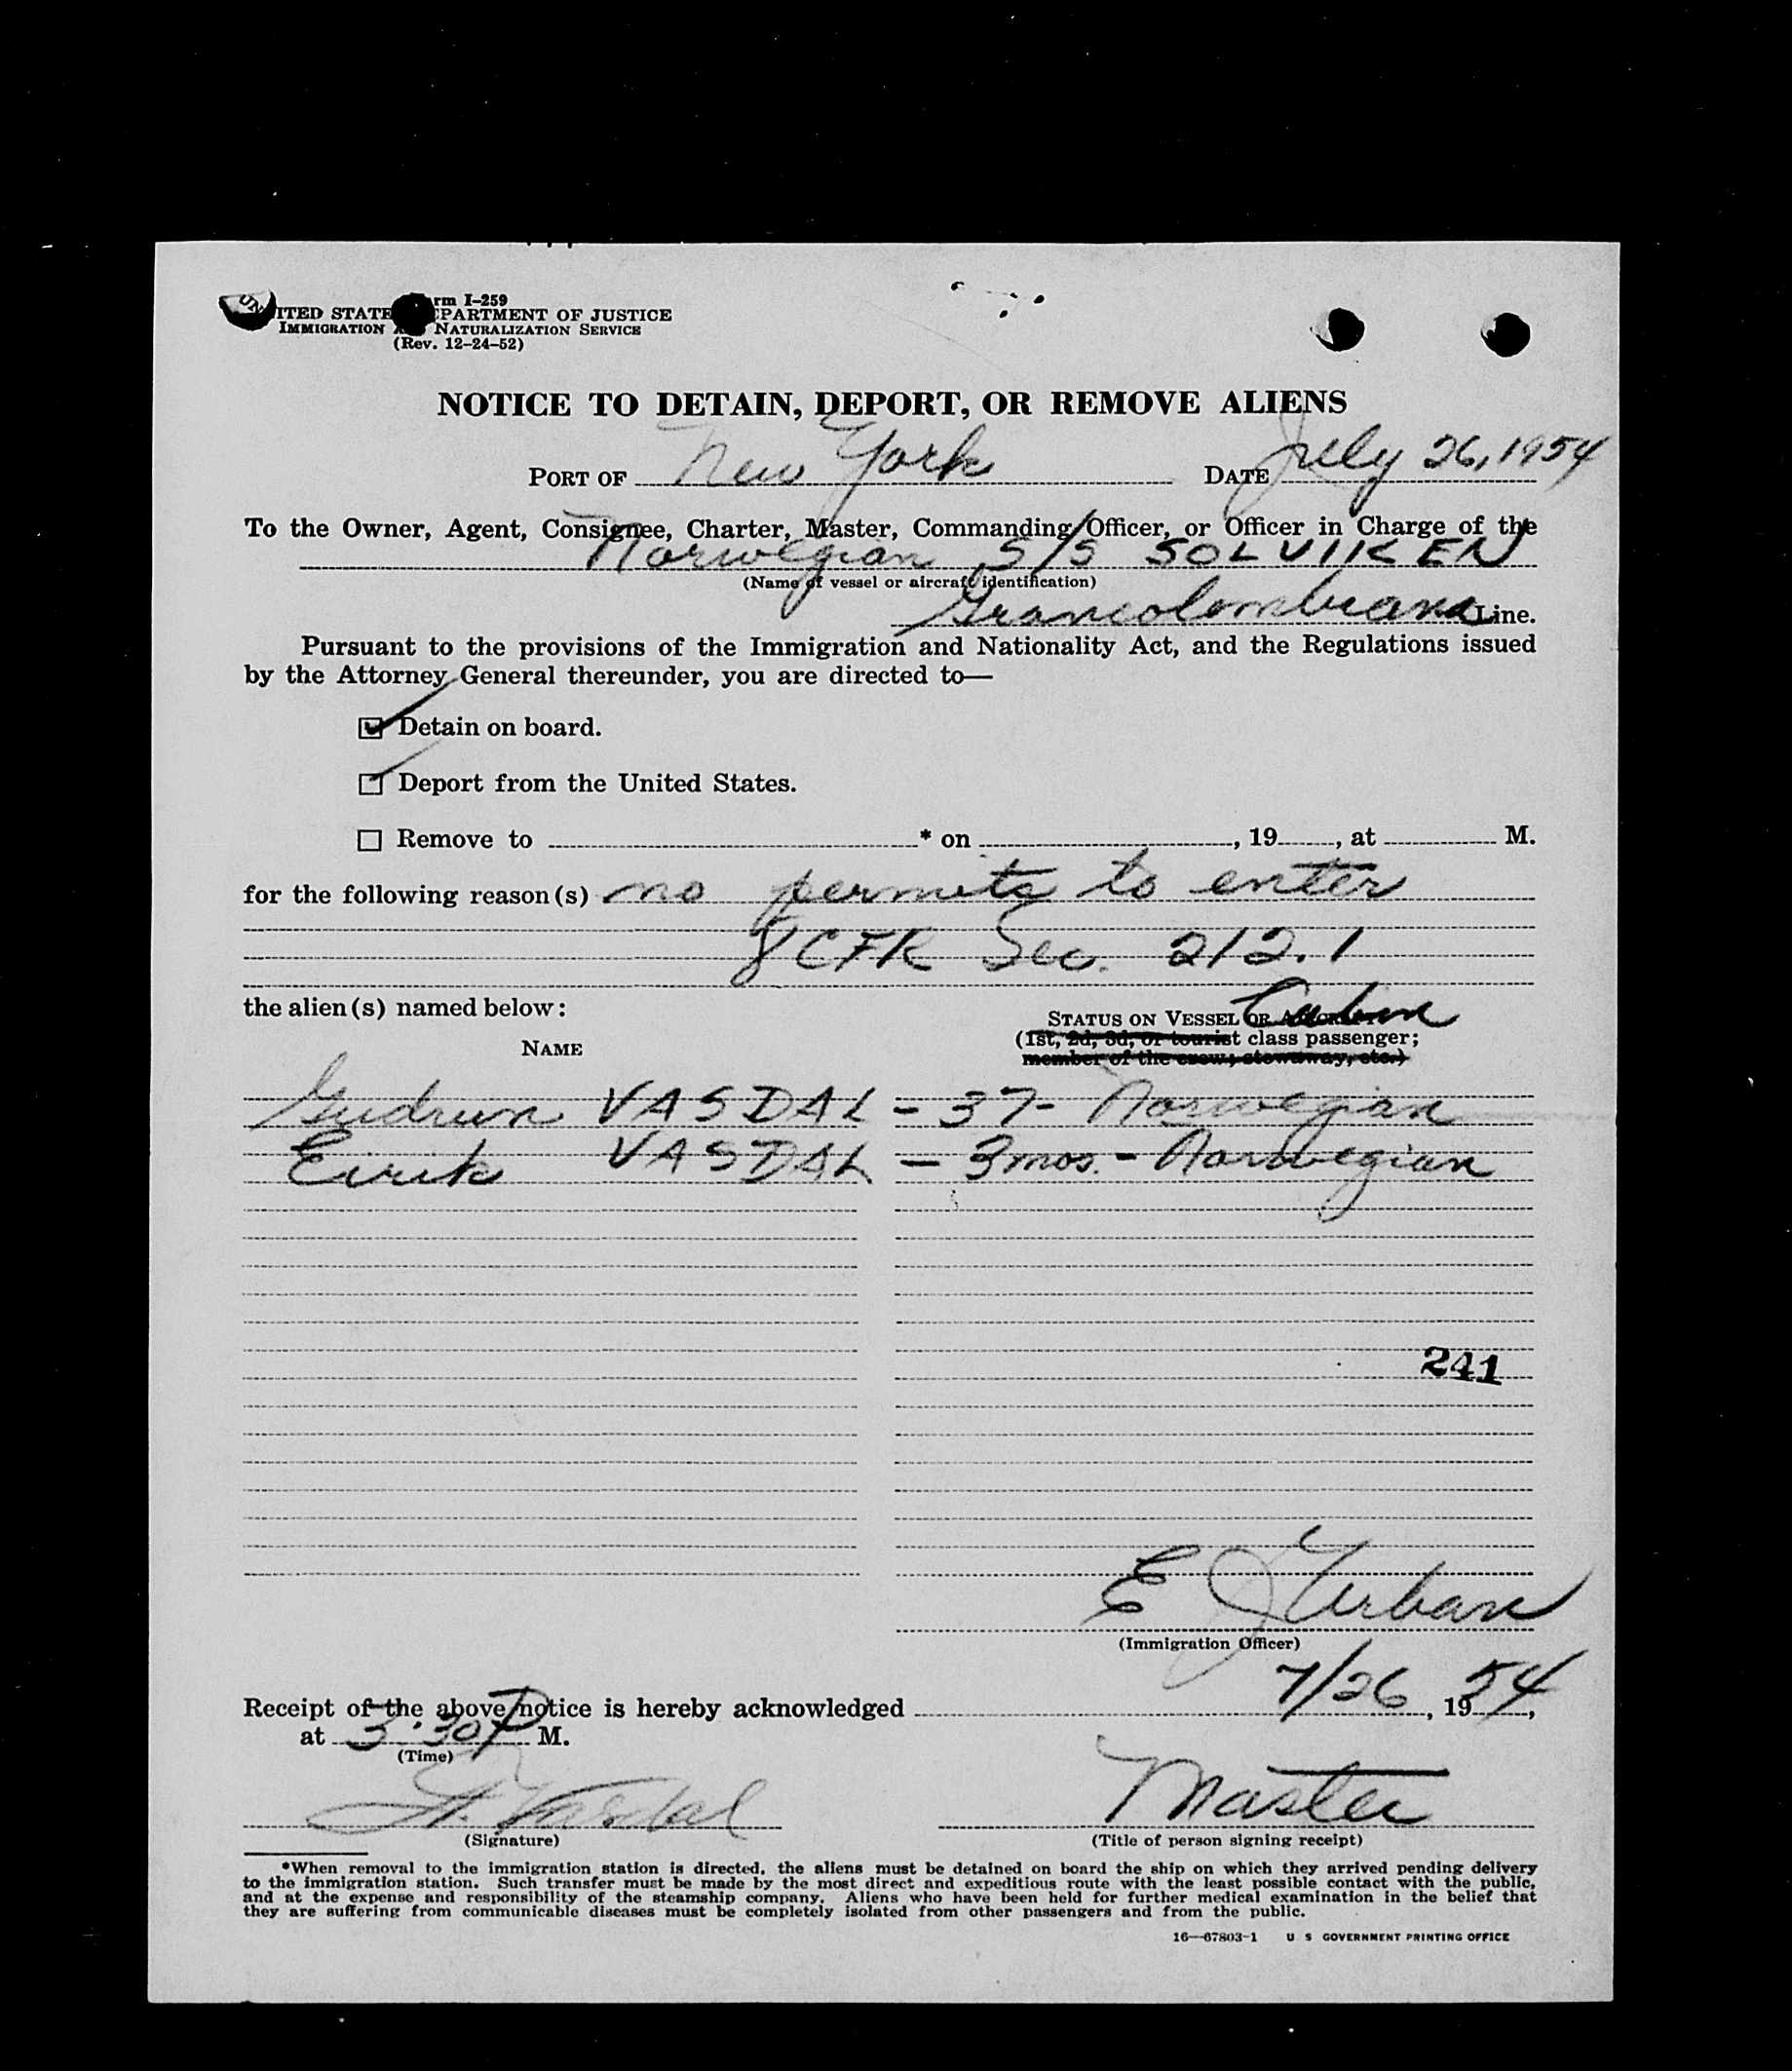 Form I-259
UNITED STATES DEPARTMENT OF JUSTICE
IMMIGRATION AND NATURALIZATION SERVICE
(Rev. 12-24-52)
NOTICE TO DETAIN, DEPORT, OR REMOVE ALIENS
PORT OF New York DATE July 26, 1954
To the Owner, Agent, Consignee, Charter, Master, Commanding Officer, or Officer in Charge of the
Norwegian S/S SOLVIKEN
(Name of vessel or aircraft identification)
Grancolombiana Line.
Pursuant to the provisions of the Immigration and Nationality Act, and the Regulations issued
by the Attorney General thereunder, you are directed to—
Detain on board.
Deport from the United States.
Remove to * on , 19 , at M.
for the following reason(s) no permits to enter
8 CFR Sec. 212.1
the alien(s) named below:
Cabin
STATUS ON VESSEL OR AIRCRAFT
NAME
(1st, 2d, 3d, or tourist class passenger;
member of the crew; stowaway, etc.)
Gudrun VASDAL - 37 - Norwegian
Eirik VASDAL - 3 mos. - Norwegian
241
E J Urban
(Immigration Officer)
Receipt of the above notice is hereby acknowledged 7/26, 1954,
at 3:30 P M.
(Time)
Vasdal Master
(Signature) (Title of person signing receipt)
*When removal to the immigration station is directed, the aliens must be detained on board the ship on which they arrived pending delivery
to the immigration station. Such transfer must be made by the most direct and expeditious route with the least possible contact with the public,
and at the expense and responsibility of the steamship company. Aliens who have been held for further medical examination in the belief that
they are suffering from communicable diseases must be completely isolated from other passengers and from the public.
16—67803-1 U S GOVERNMENT PRINTING OFFICE